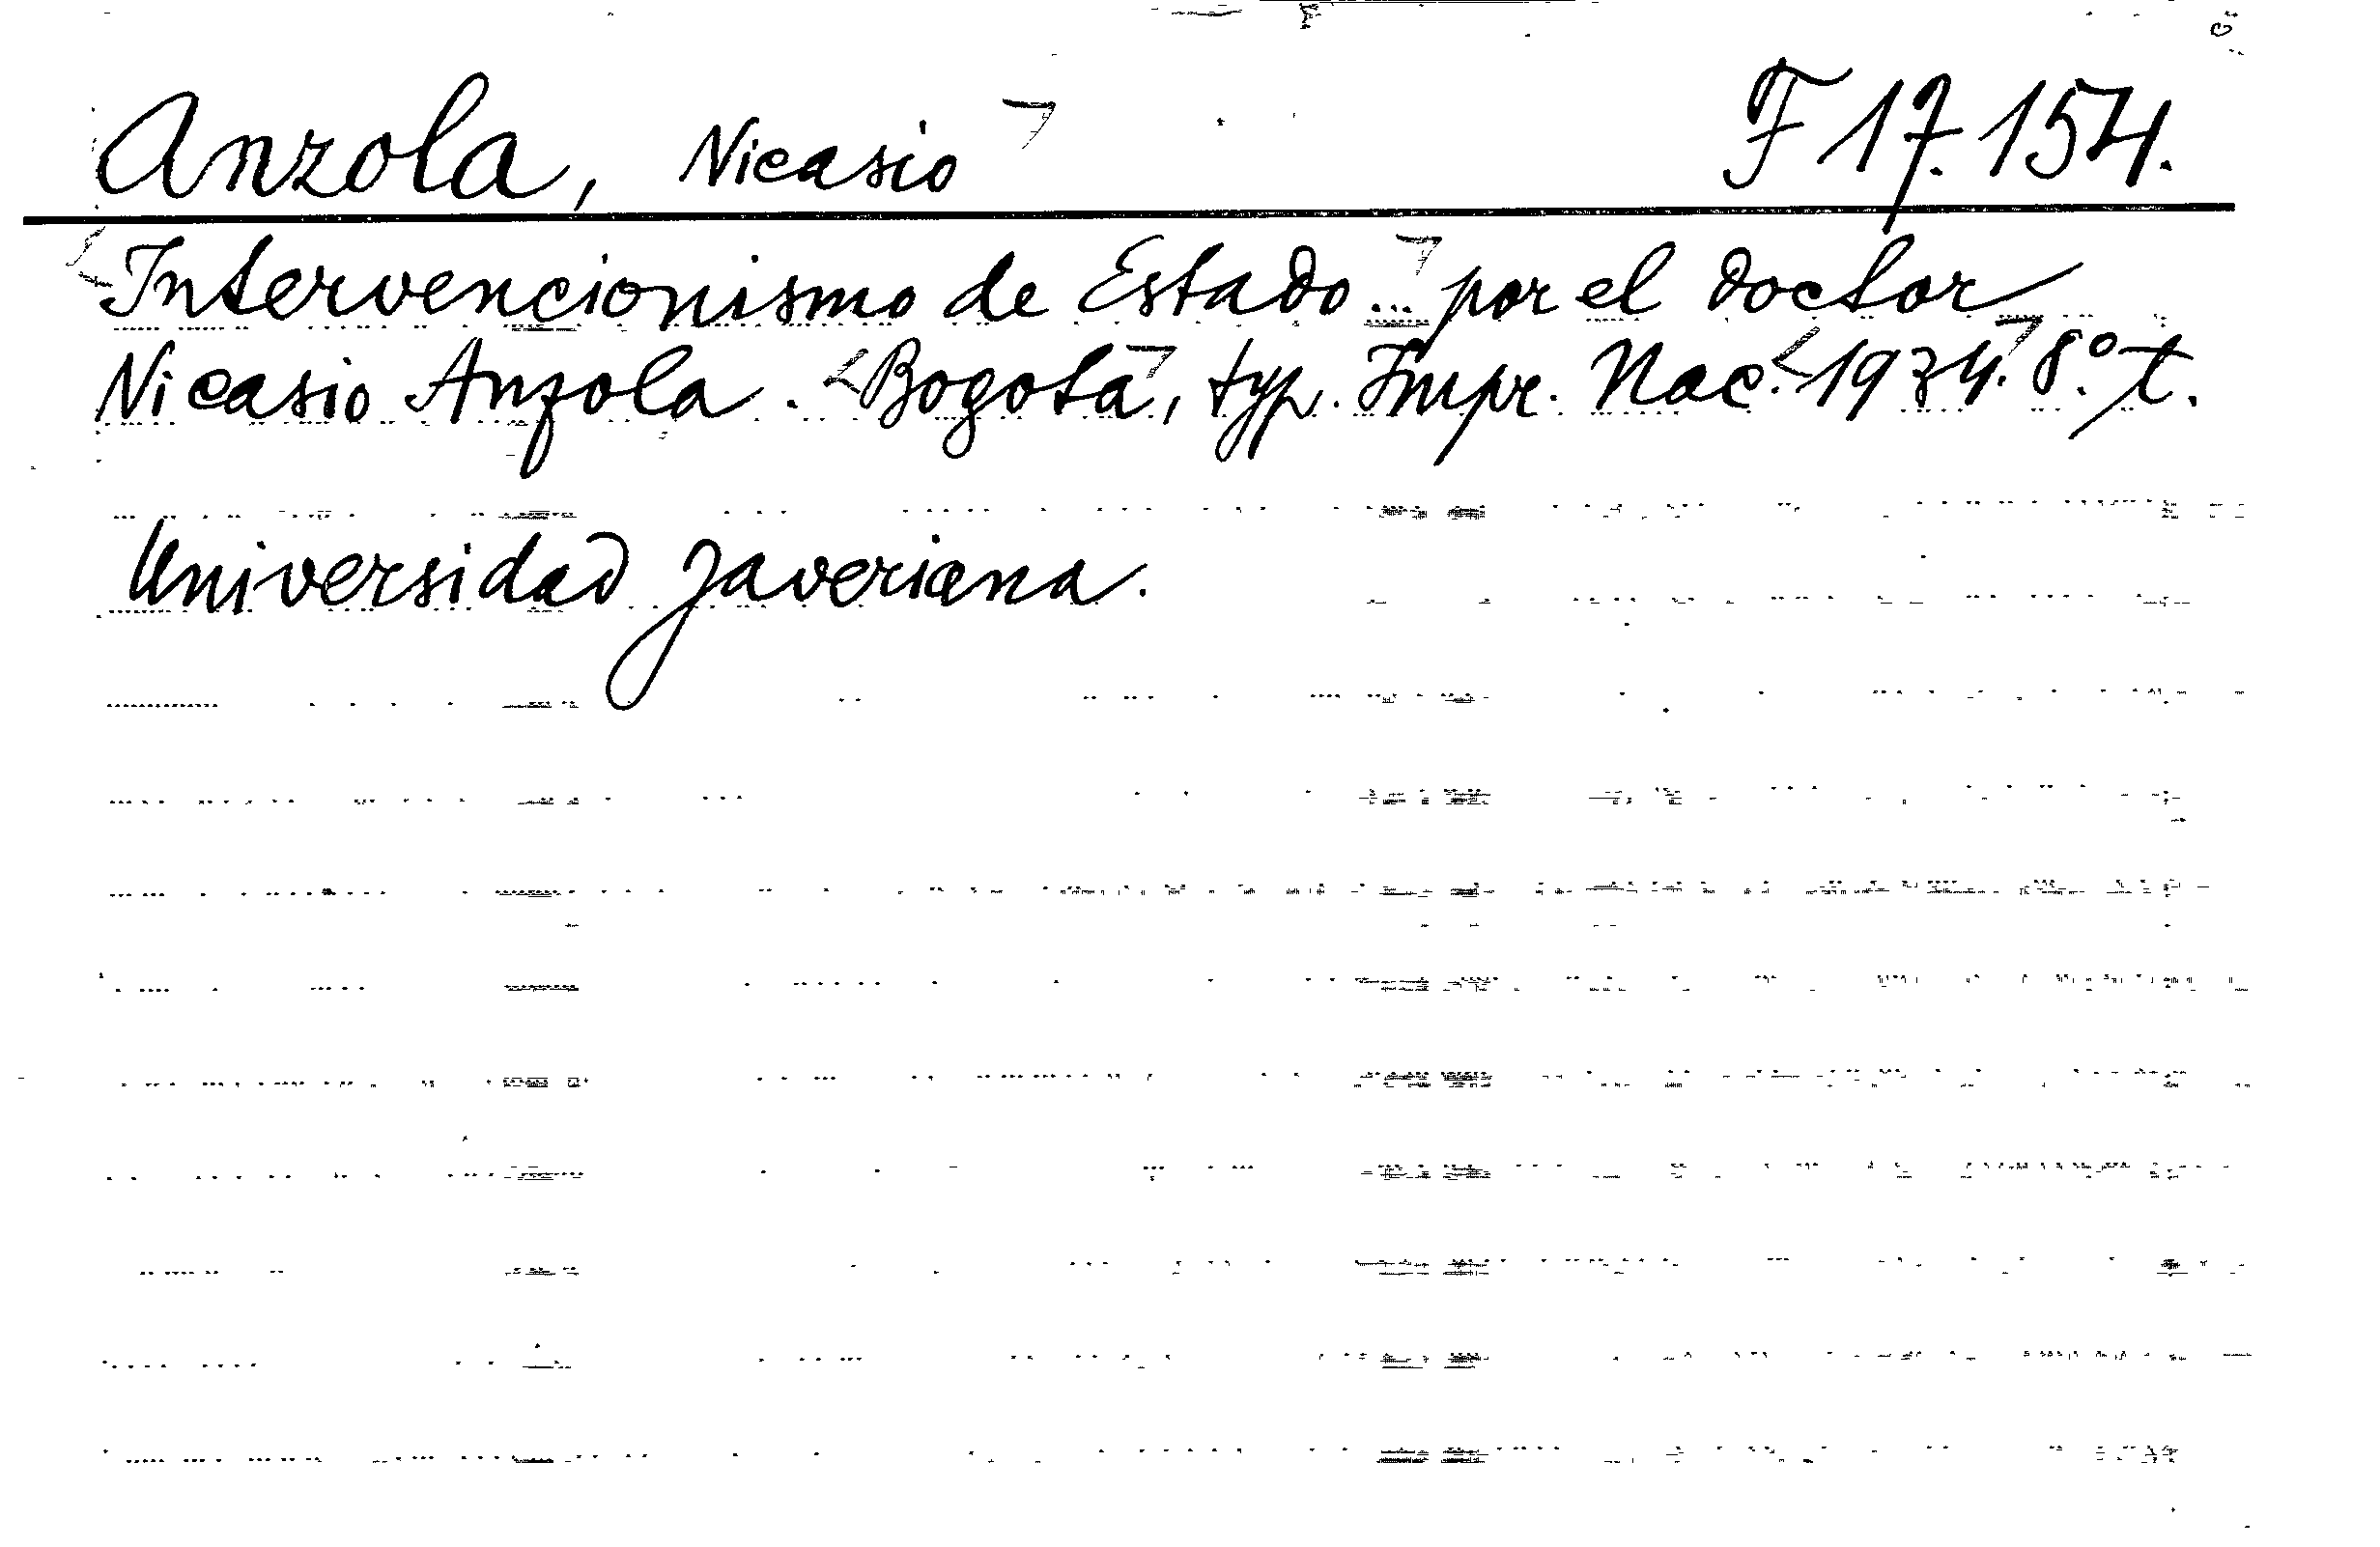 Anzola, Nicasio F 17.154.
Intervencionismo de Estado... por el doctor
Nicasio Anzola. Bogotá, typ. Impr. Nac. 1934. 8.° t.
Universidad Javeriana.